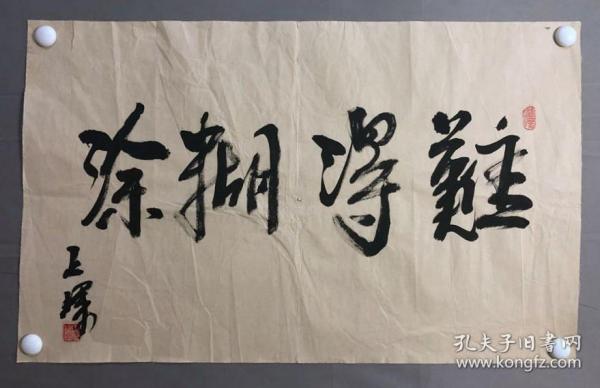 難得糊涂
孔夫子旧书网
www.kongfz.com